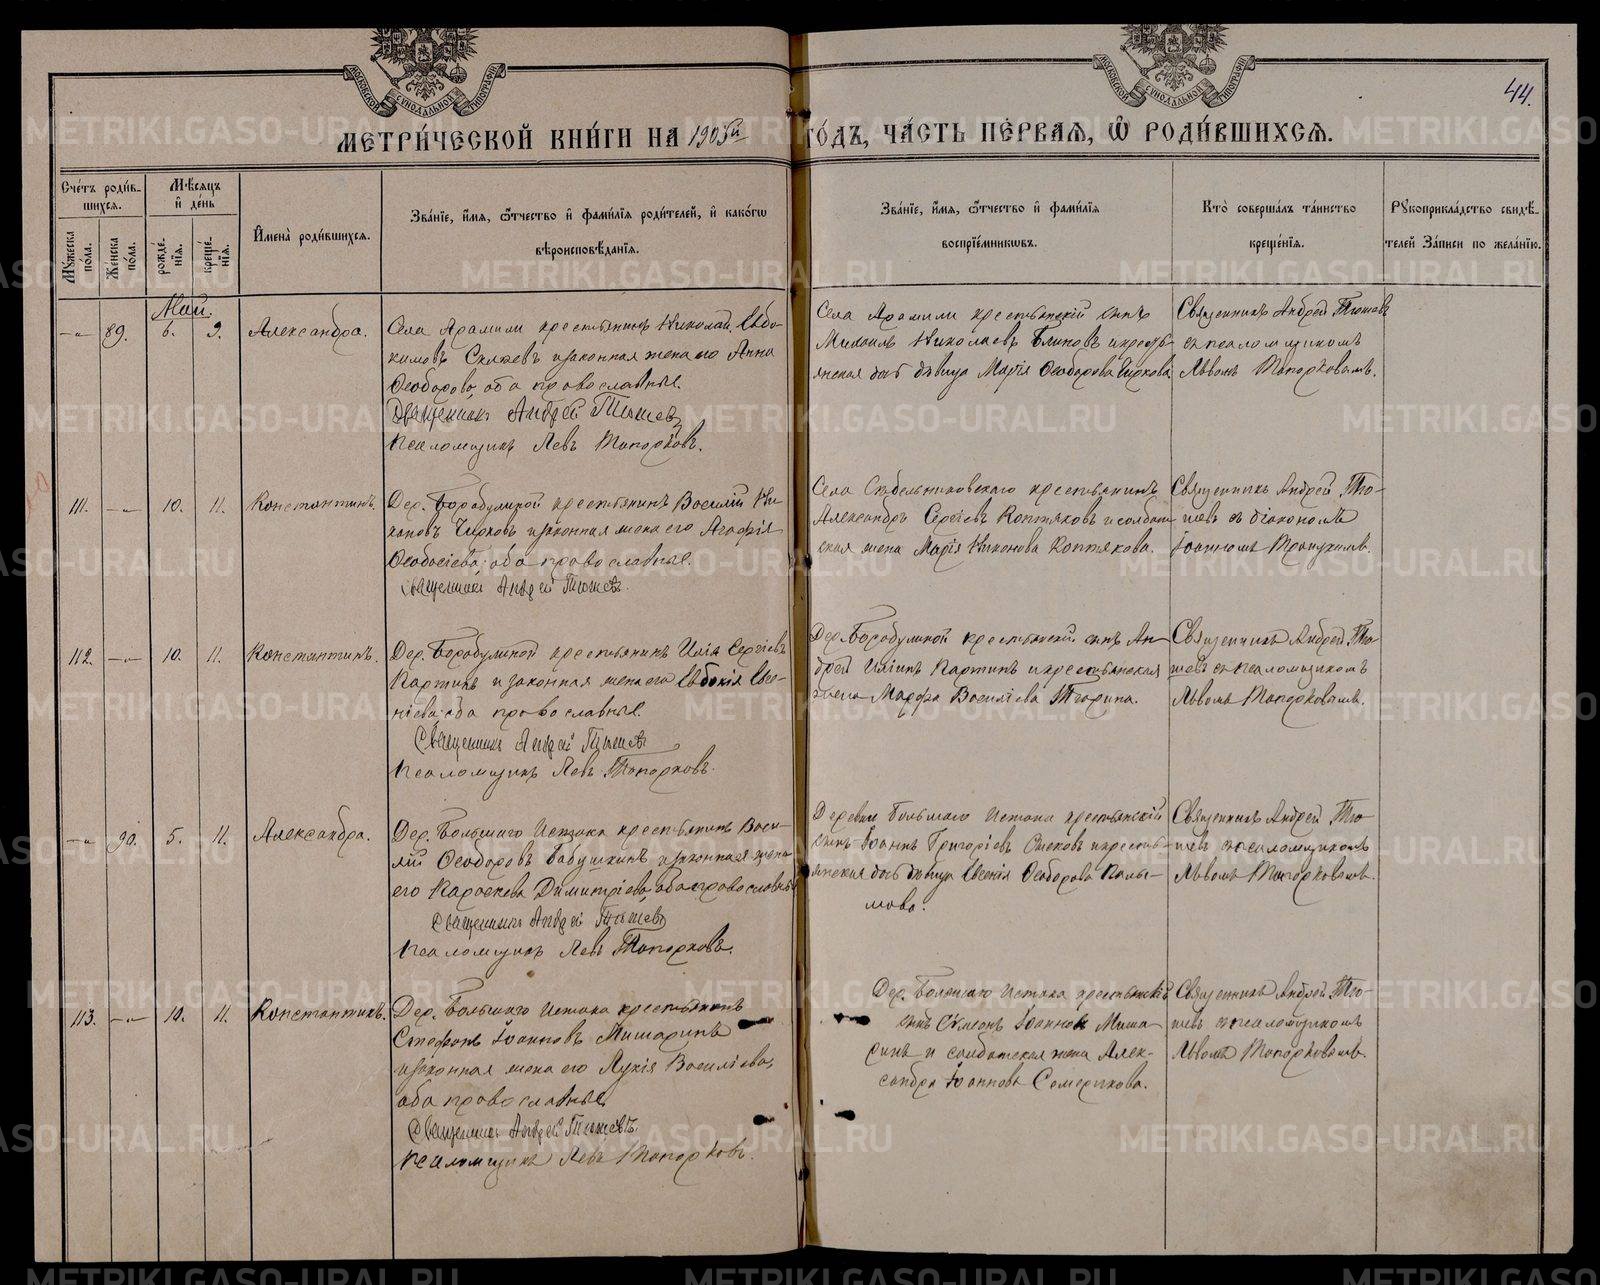 44.
МЕТРИ́ЧЕСКОЙ КНИ́ГИ НА 1905ый ГО́ДЪ, ЧА́СТЬ ПЕ́РВАЯ, Ѽ РОДИ́ВШИХСЯ.
Сче́тъ роди́в-
шихся.
Мꙋ́жеска по́ла.
Же́нска по́ла.
Мѣ́сяцъ
и҆ де́нь
рожде́-
нїя.
креще́-
нїя.
И҆мена̀ роди́вшихся.
Зва́нїе, и҆́мя, ѻ҆́тчество и҆ фами́лїя роди́телей, и҆ како́гѡ
вѣроисповѣ́данїя.
Зва́нїе, и҆́мя, ѻ҆́тчество и҆ фами́лїя
воспрїе́мникѡвъ.
Кто̀ соверша́лъ та́инство
креще́нїя.
Рꙋкоприкла́дство свидѣ́-
телей За́писи по жела́нїю.
Май.
—„— 89. 6. 9. Александра.
Села Арамили крестьянинъ Николай Евдо-
кимовъ и законная жена его Анна
Ѳеодорова, оба православные.
Священникъ Андрей
Псаломщикъ Левъ Топорковъ.
Села Арамили крестьянскій сынъ
Михаилъ Николаевъ Блиновъ и кресть-
янская дочь дѣвица Марія Ѳеодорова Чиркова
Священникъ Андрей
съ псаломщикомъ
Львомъ Топорковымъ.
111. —„— 10. 11. Константинъ.
Дер. Бородулиной крестьянинъ Василій Ни-
коновъ Чирковъ и законная жена его Агафія
оба православные.
Священникъ Андрей
Села крестьянинъ
Александръ Сергіевъ Коптяковъ и солдат-
ская жена Марія Никонова Коптякова.
Священникъ Андрей
съ діакономъ
Іоанномъ
112. —„— 10. 11. Константинъ.
Дер. Бородулиной крестьянинъ Илія Сергіевъ
и законная жена его Евдокія Евге-
ніева, оба православные.
Священникъ Андрей
Псаломщикъ Левъ Топорковъ.
Дер. Бородулиной крестьянскій сынъ Ан-
дрей Иліинъ и крестьянская
жена Марѳа Василіева
Священникъ Андрей
съ псаломщикомъ
Львомъ Топорковымъ.
—„— 90. 5. 11. Александра.
Дер. Большаго Истока крестьянинъ Васи-
лій Ѳеодоровъ Бабушкинъ и законная жена
его Параскева Димитріева, оба православные
Священникъ Андрей
Псаломщикъ Левъ Топорковъ.
Деревни Большаго Истока крестьянскій
сынъ Іоаннъ Григоріевъ и кресть-
янская дочь дѣвица Евгенія Ѳеодорова
Священникъ Андрей
съ псаломщикомъ
Львомъ Топорковымъ.
113. —„— 10. 11. Константинъ.
Дер. Большаго Истока крестьянинъ
Стефанъ Іоанновъ Мишаринъ
и законная жена его Лукія Василіева,
оба православные.
Священникъ Андрей
Псаломщикъ Левъ Топорковъ.
Дер. Большаго Истока крестьянскій
сынъ Сѵмеонъ Іоанновъ Миша-
ринъ и солдатская жена Алек-
сандра Іоаннова Семерикова.
Священникъ Андрей
съ псаломщикомъ
Львомъ Топорковымъ.
METRIKI.GASO-URAL.RU